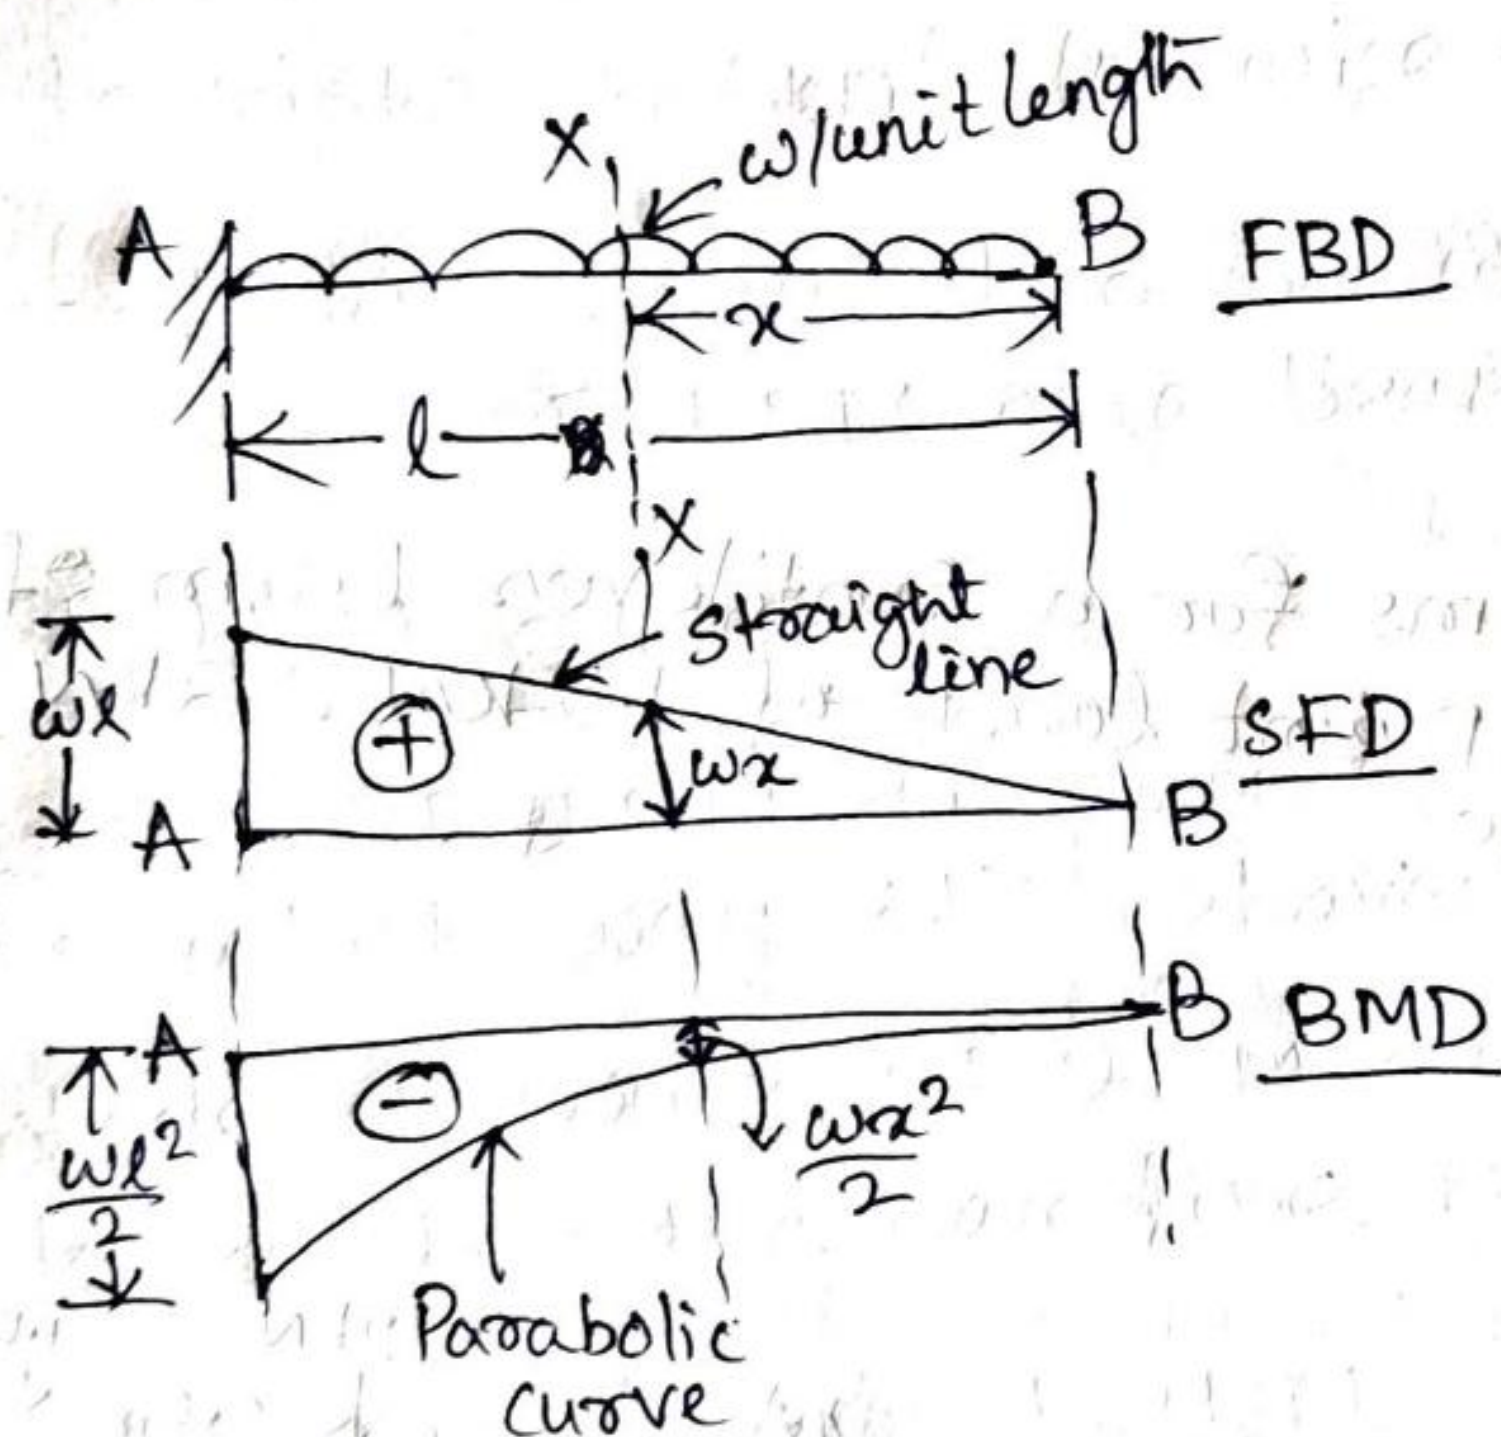 w/unit length
X
A
B
FBD
x
l
X
straight
line
wl
+
wx
SFD
A
B
A
B
BMD
−
wl²/2
wx²/2
Parabolic
curve